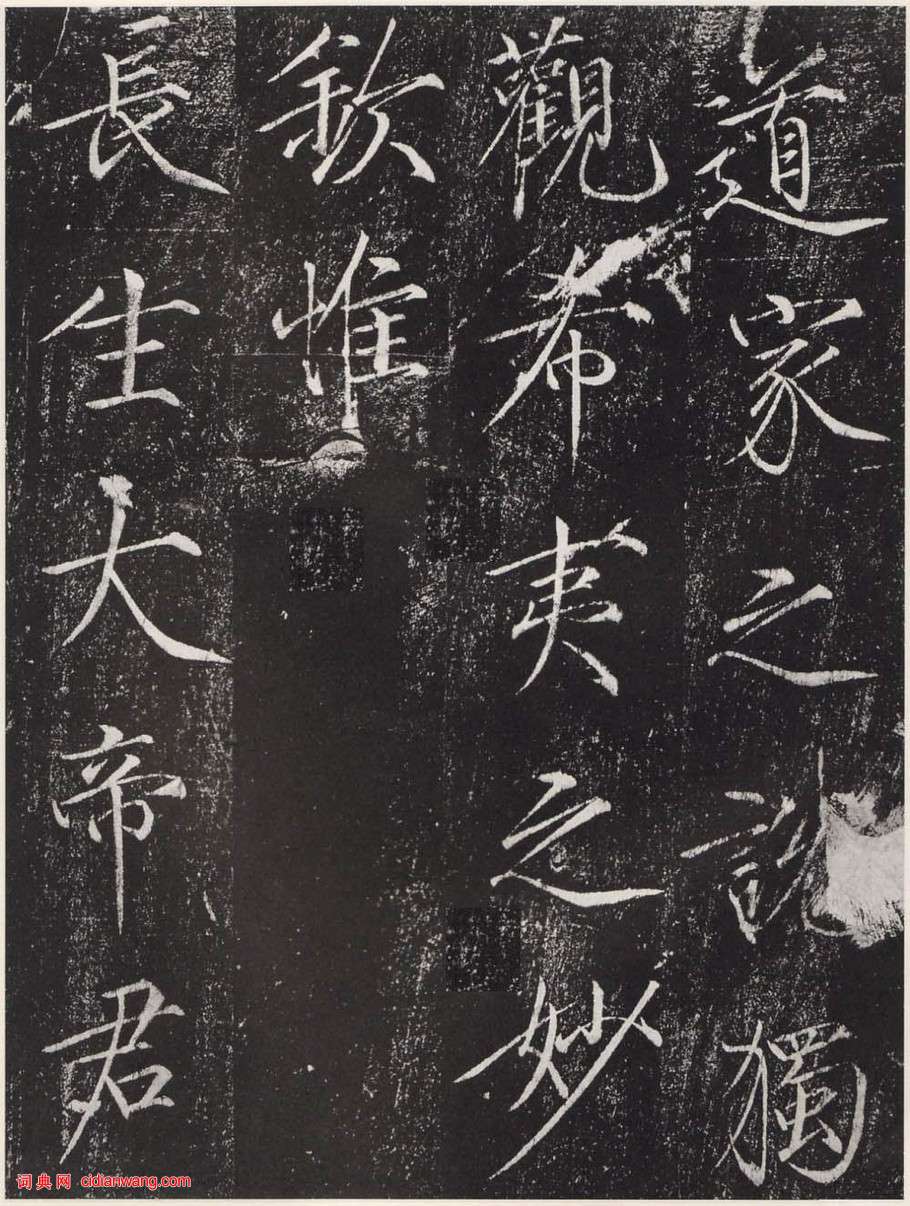 道家之說獨
觀希夷之妙
欽惟
長生大帝君
词典网 cidianwang.com